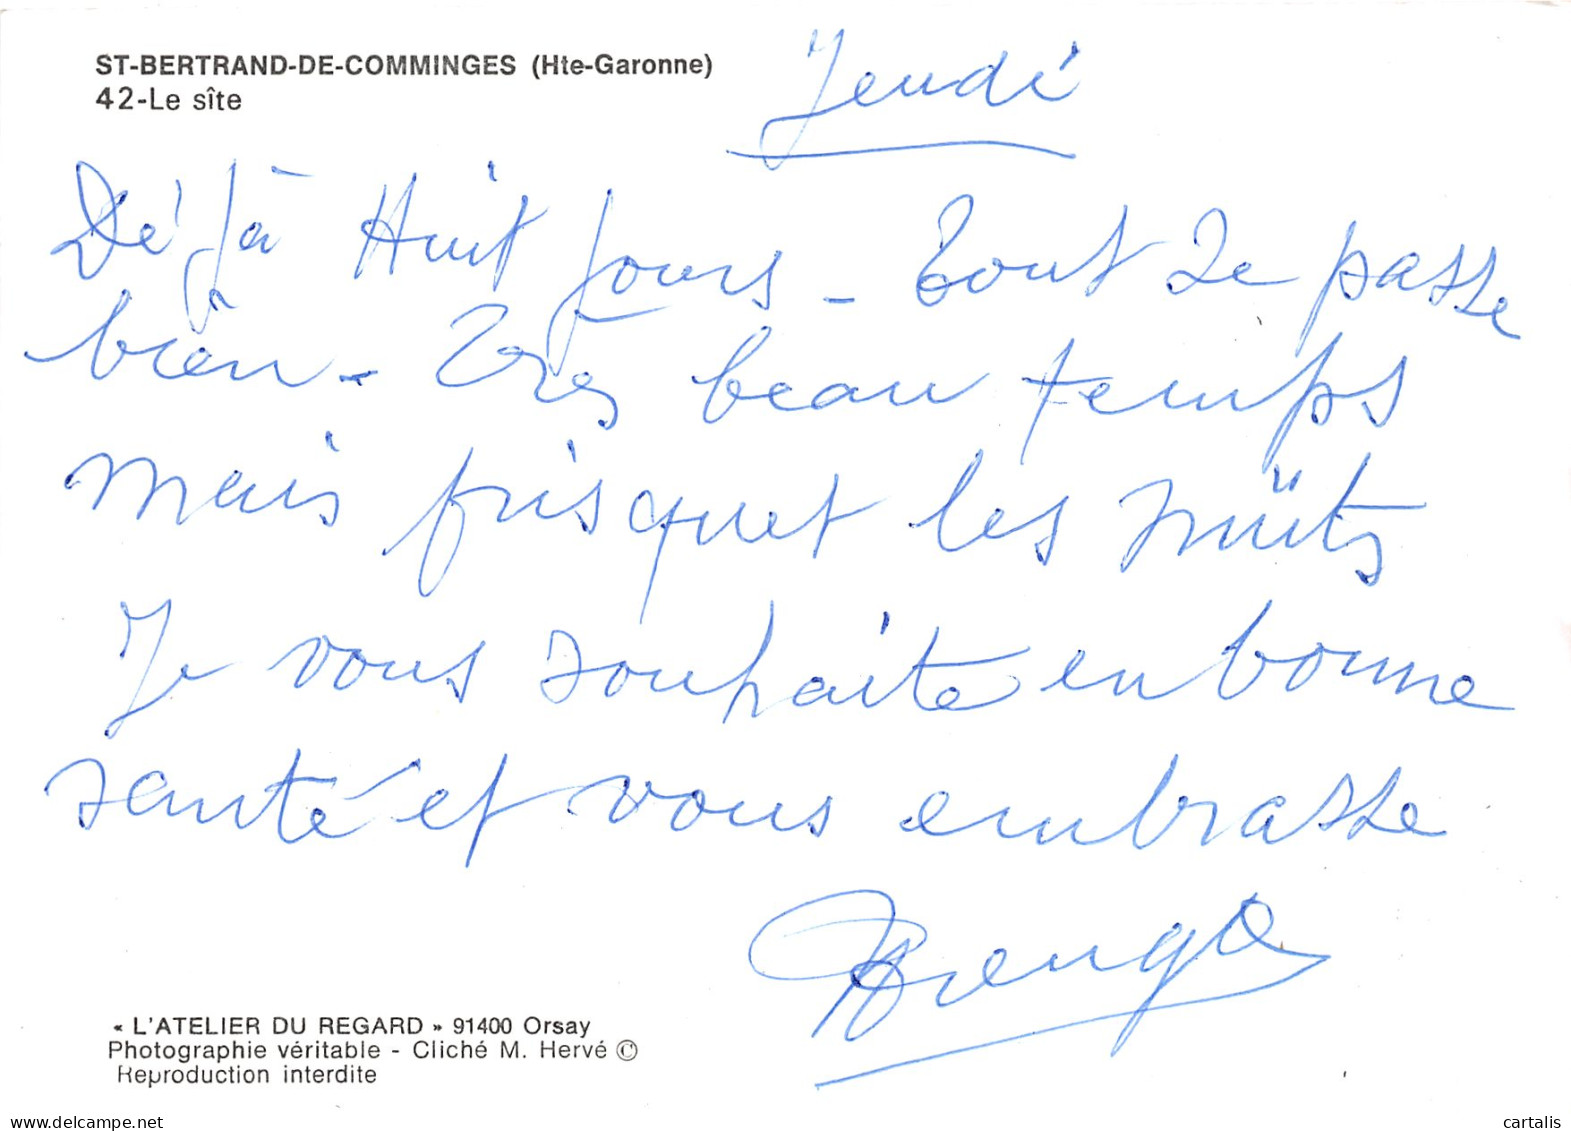 ST-BERTRAND-DE-COMMINGES (Hte-Garonne)
42-Le sîte
Jeudi
Déjà Huit jours - Tout se passe
bien - Très beau temps
mais frisquet les nuits
Je vous souhaite en bonne
santé et vous embrasse
« L'ATELIER DU REGARD » 91400 Orsay
Photographie véritable - Cliché M. Hervé ©
Reproduction interdite
cartalis